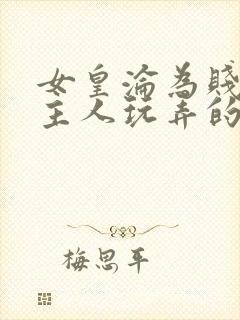 女皇淪為賤
主人玩弄的
梅思平